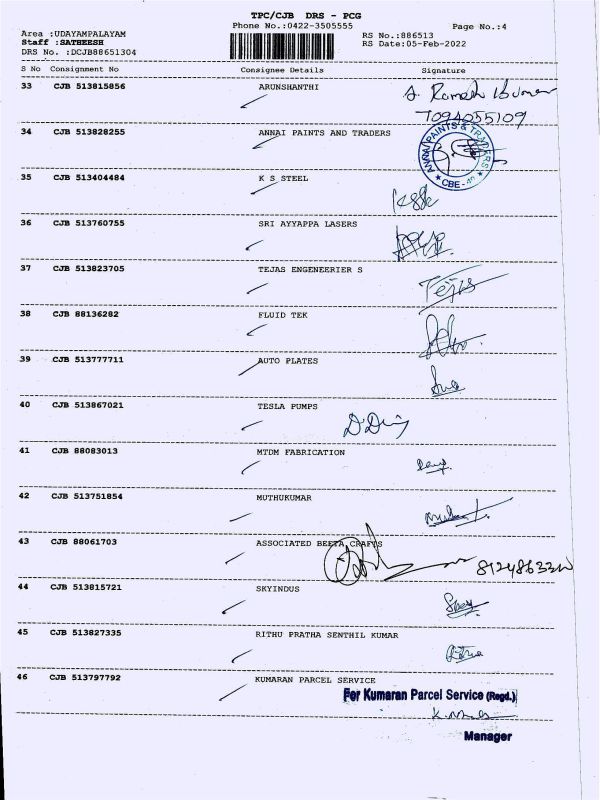 TPC/CJB DRS - PCG
Phone No.:0422-3505555
Page No.:4
Area :UDAYAMPALAYAM
RS No.:886513
Staff :SATHEESH
RS Date:05-Feb-2022
DRS No. :DCJB88651304
S No Consignment No Consignee Details Signature
33 CJB 513815856 ARUNSHANTHI
34 CJB 513828255 ANNAI PAINTS AND TRADERS
ANNAI PAINTS & TRADERS
CBE-
35 CJB 513404484 K S STEEL
36 CJB 513760755 SRI AYYAPPA LASERS
37 CJB 513823705 TEJAS ENGENEERIER S
Tejas
38 CJB 88136282 FLUID TEK
39 CJB 513777711 AUTO PLATES
40 CJB 513867021 TESLA PUMPS
41 CJB 88083013 MTDM FABRICATION
42 CJB 513751854 MUTHUKUMAR
43 CJB 88061703 ASSOCIATED BEETA CRAFTS
44 CJB 513815721 SKYINDUS
45 CJB 513827335 RITHU PRATHA SENTHIL KUMAR
46 CJB 513797792 KUMARAN PARCEL SERVICE
For Kumaran Parcel Service (Regd.)
Manager